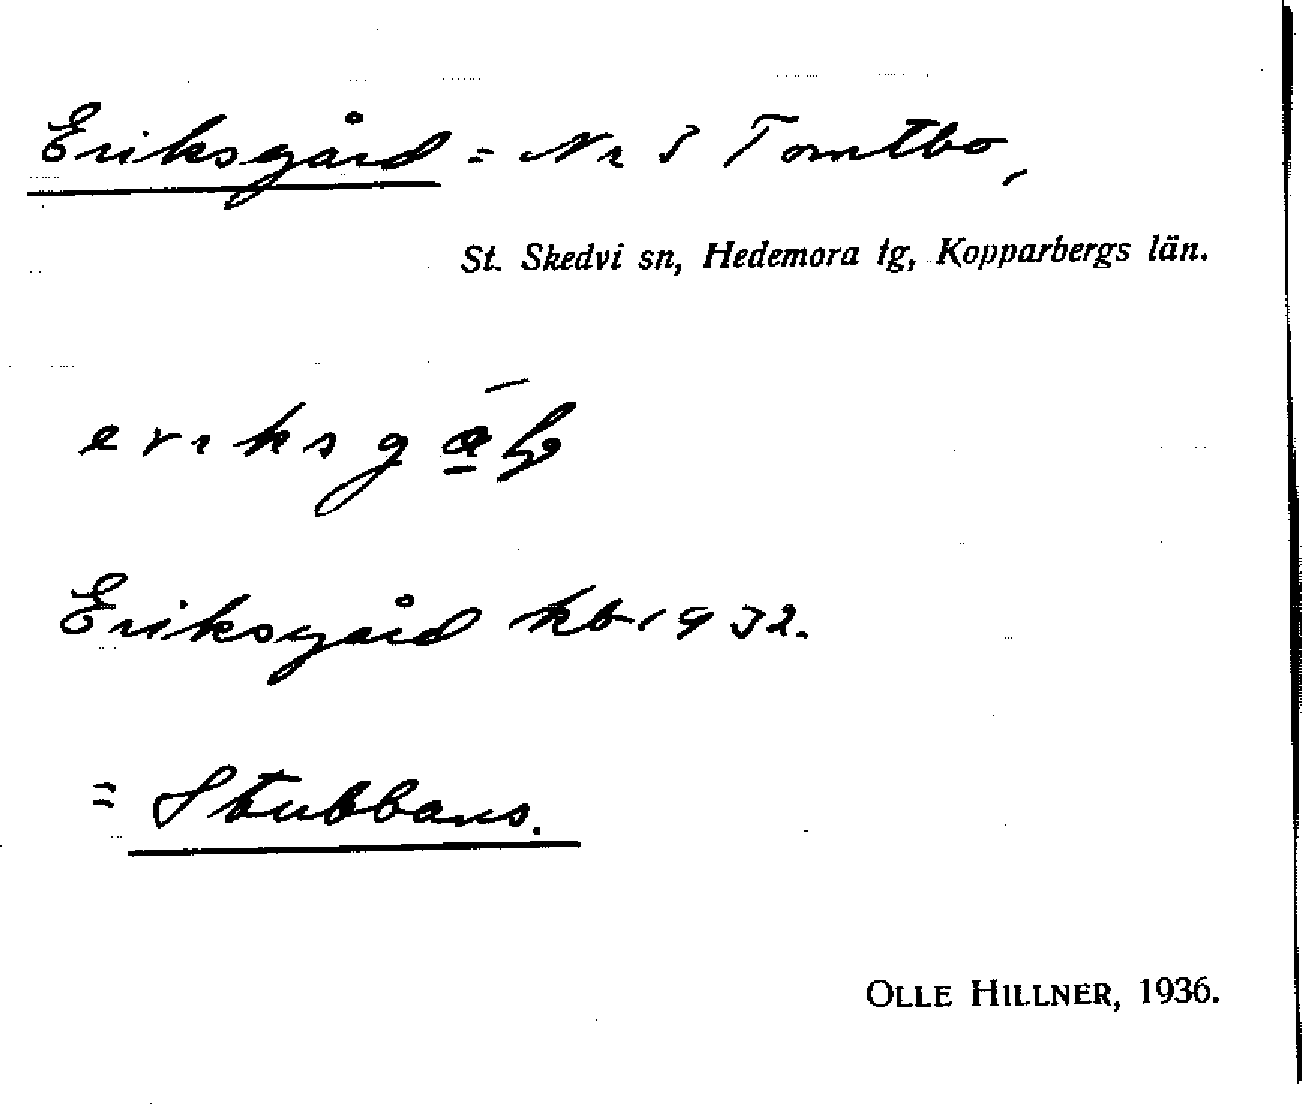 Eriksgård = Nr 5 Tomtbo,
St. Skedvi sn, Hedemora tg, Kopparbergs län.
Eriksgård kb 1932.
= Stubbans.
OLLE HILLNER, 1936.